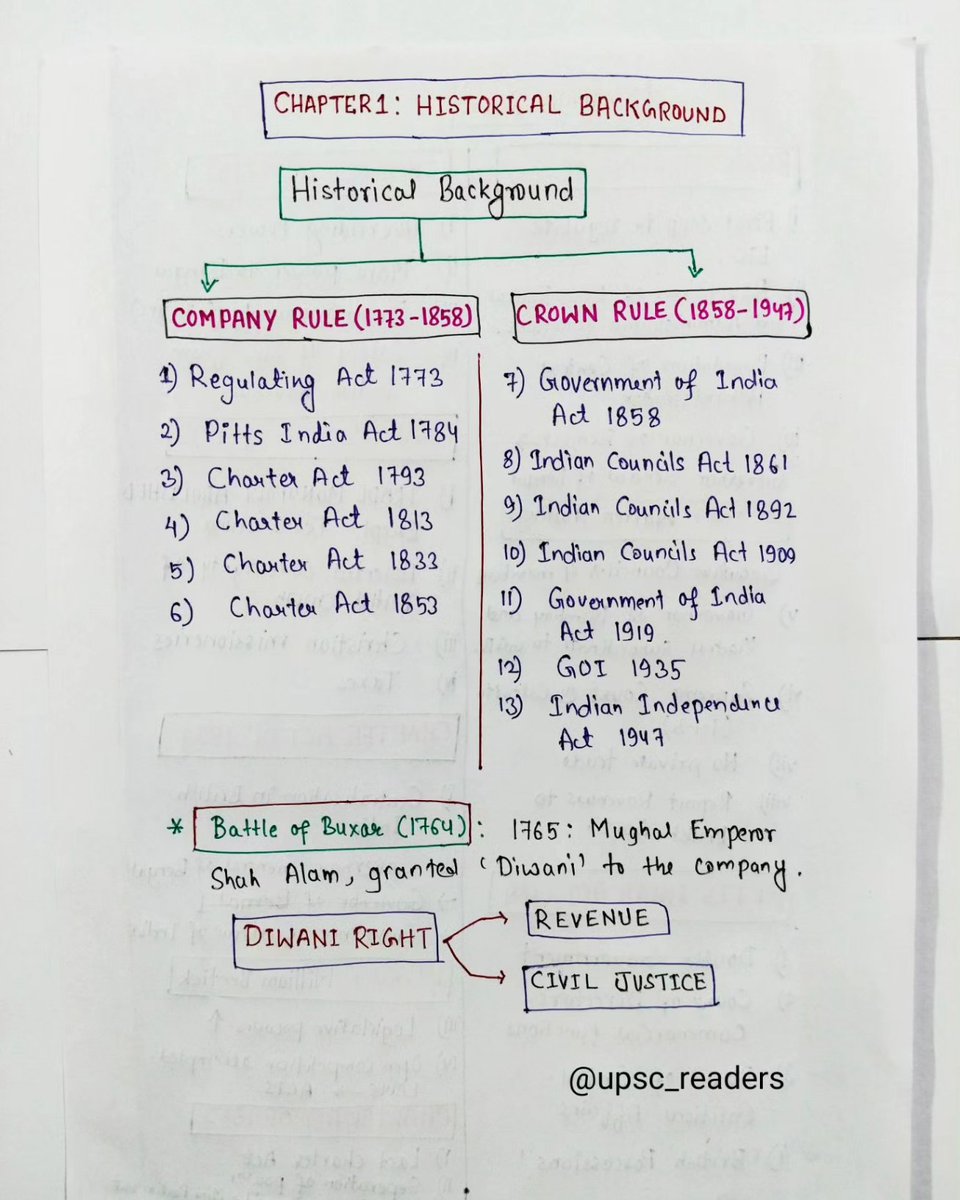 CHAPTER1: HISTORICAL BACKGROUND
Historical Background
COMPANY RULE (1773-1858)
1) Regulating Act 1773
2) Pitts India Act 1784
3) Charter Act 1793
4) Charter Act 1813
5) Charter Act 1833
6) Charter Act 1853
CROWN RULE (1858-1947)
7) Government of India
Act 1858
8) Indian Councils Act 1861
9) Indian Councils Act 1892
10) Indian Councils Act 1909
11) Government of India
Act 1919
12) GOI 1935
13) Indian Independence
Act 1947
* Battle of Buxar (1764): 1765: Mughal Emperor
Shah Alam, granted 'Diwani' to the company.
DIWANI RIGHT
REVENUE
CIVIL JUSTICE
@upsc_readers